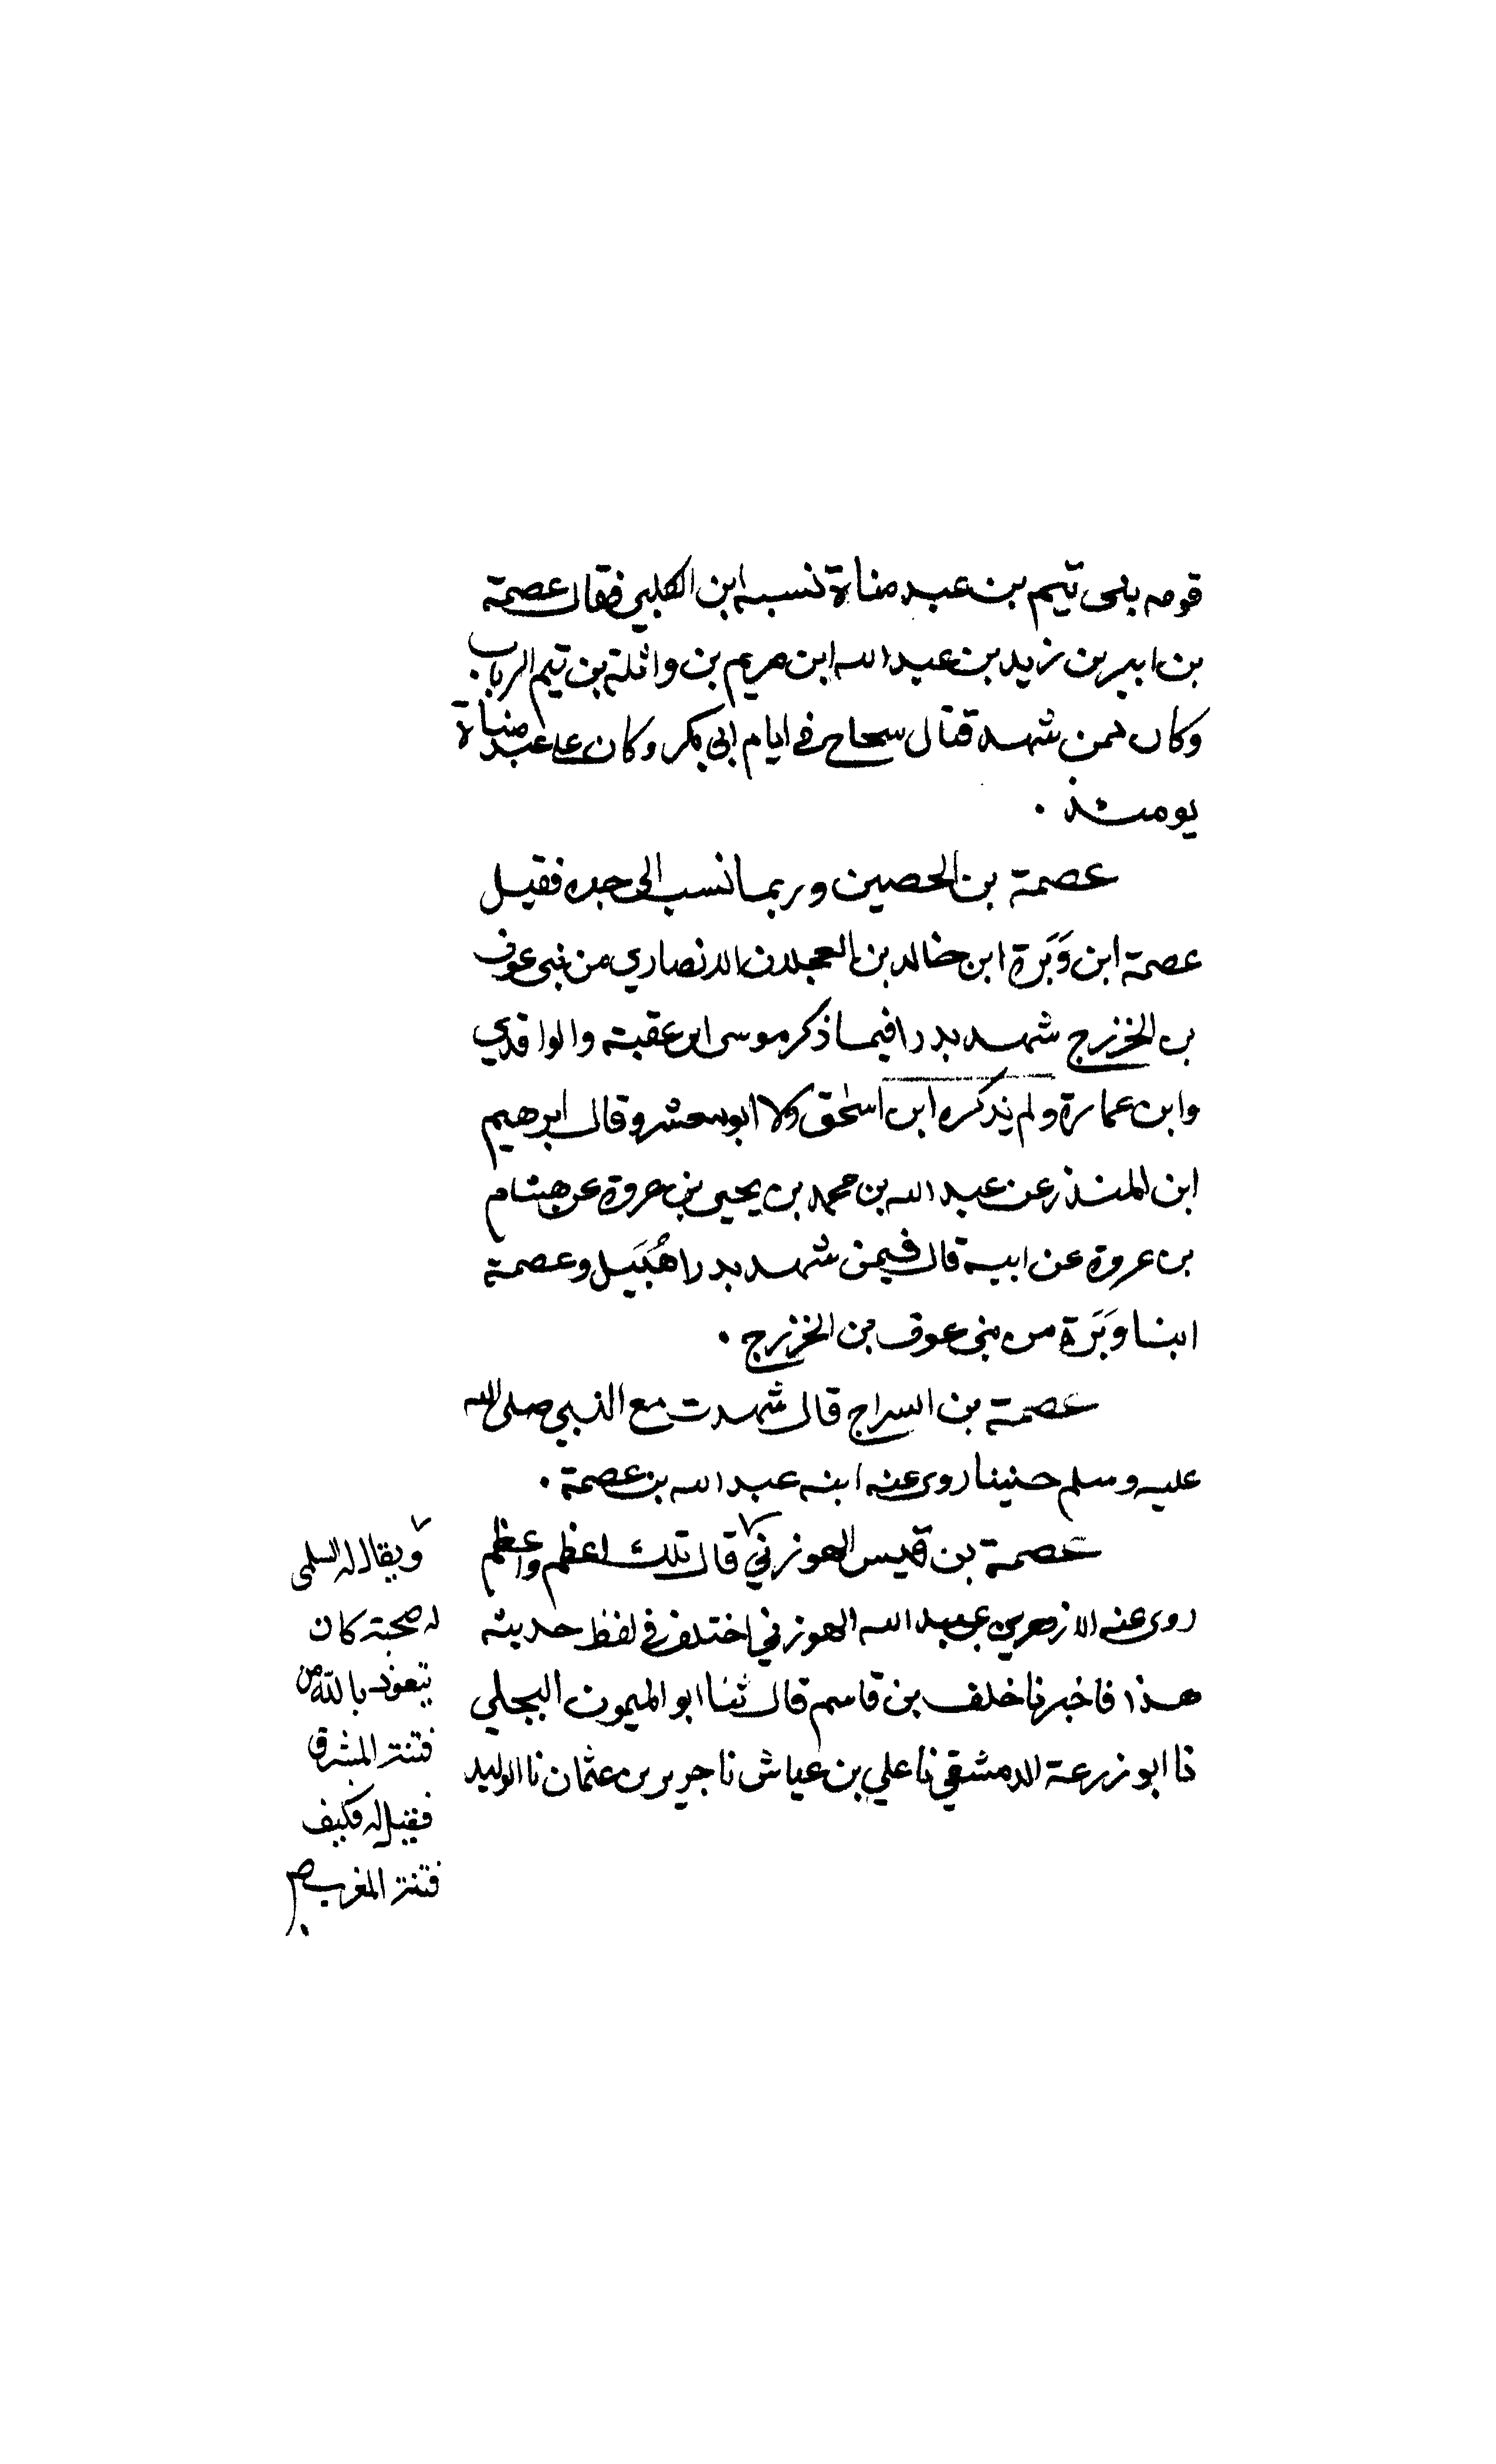 قومه بنى تيم بن عبد مناة نسبه ابن الكلبي فقال عصمة
بن ابير بن زيد بن عبد الله ابن صريم بن واثلة بن تيم الرباب
وكان ممن شهد قتال سجاح في ايام ابي بكر وكان على عبد مناة
يومئذ .
عصمة بن الحصين وربما نسب الى جده فقيل
عصمة ابن وَبَرَة ابن خالد بن العجلان الانصاري من بنى عوف
بن الخزرج شهد بدرا فيما ذكر موسى ابن عقبة والواقدي
وابن عمارة ولم يذكره ابن اسحٰق ولا ابو معشر وقال ابرهيم
ابن المنذر عن عبد الله بن محمد بن يحيى بن عروة عن هشام
بن عروة عن ابيه قال فيمن شهد بدرا هُبَيل وعصمة
ابنا وَبَرَة من بنى عوف بن الخزرج .
عصمة بن السراج قال شهدت مع النبي صلى الله
عليه وسلم حنينا روى عنه ابنه عبد الله بن عصمة .
عصمة بن قيس الهوزني قال تلك اعظم واعظم
روى عنه الازهر بن عبد الله الهوزني اختلف في لفظ حديثه
هذا فاخبرنا خلف بن قاسم قال ثنا ابو الميمون البجلي
نا ابو زرعة الدمشقي نا علي بن عياش نا جرير بن عثمان نا الوليد
ويقال له السلمى
له صحبة كان
يتعوذ بالله من
فتنة المشرق
فقيل له فكيف
فتنة المغرب صح